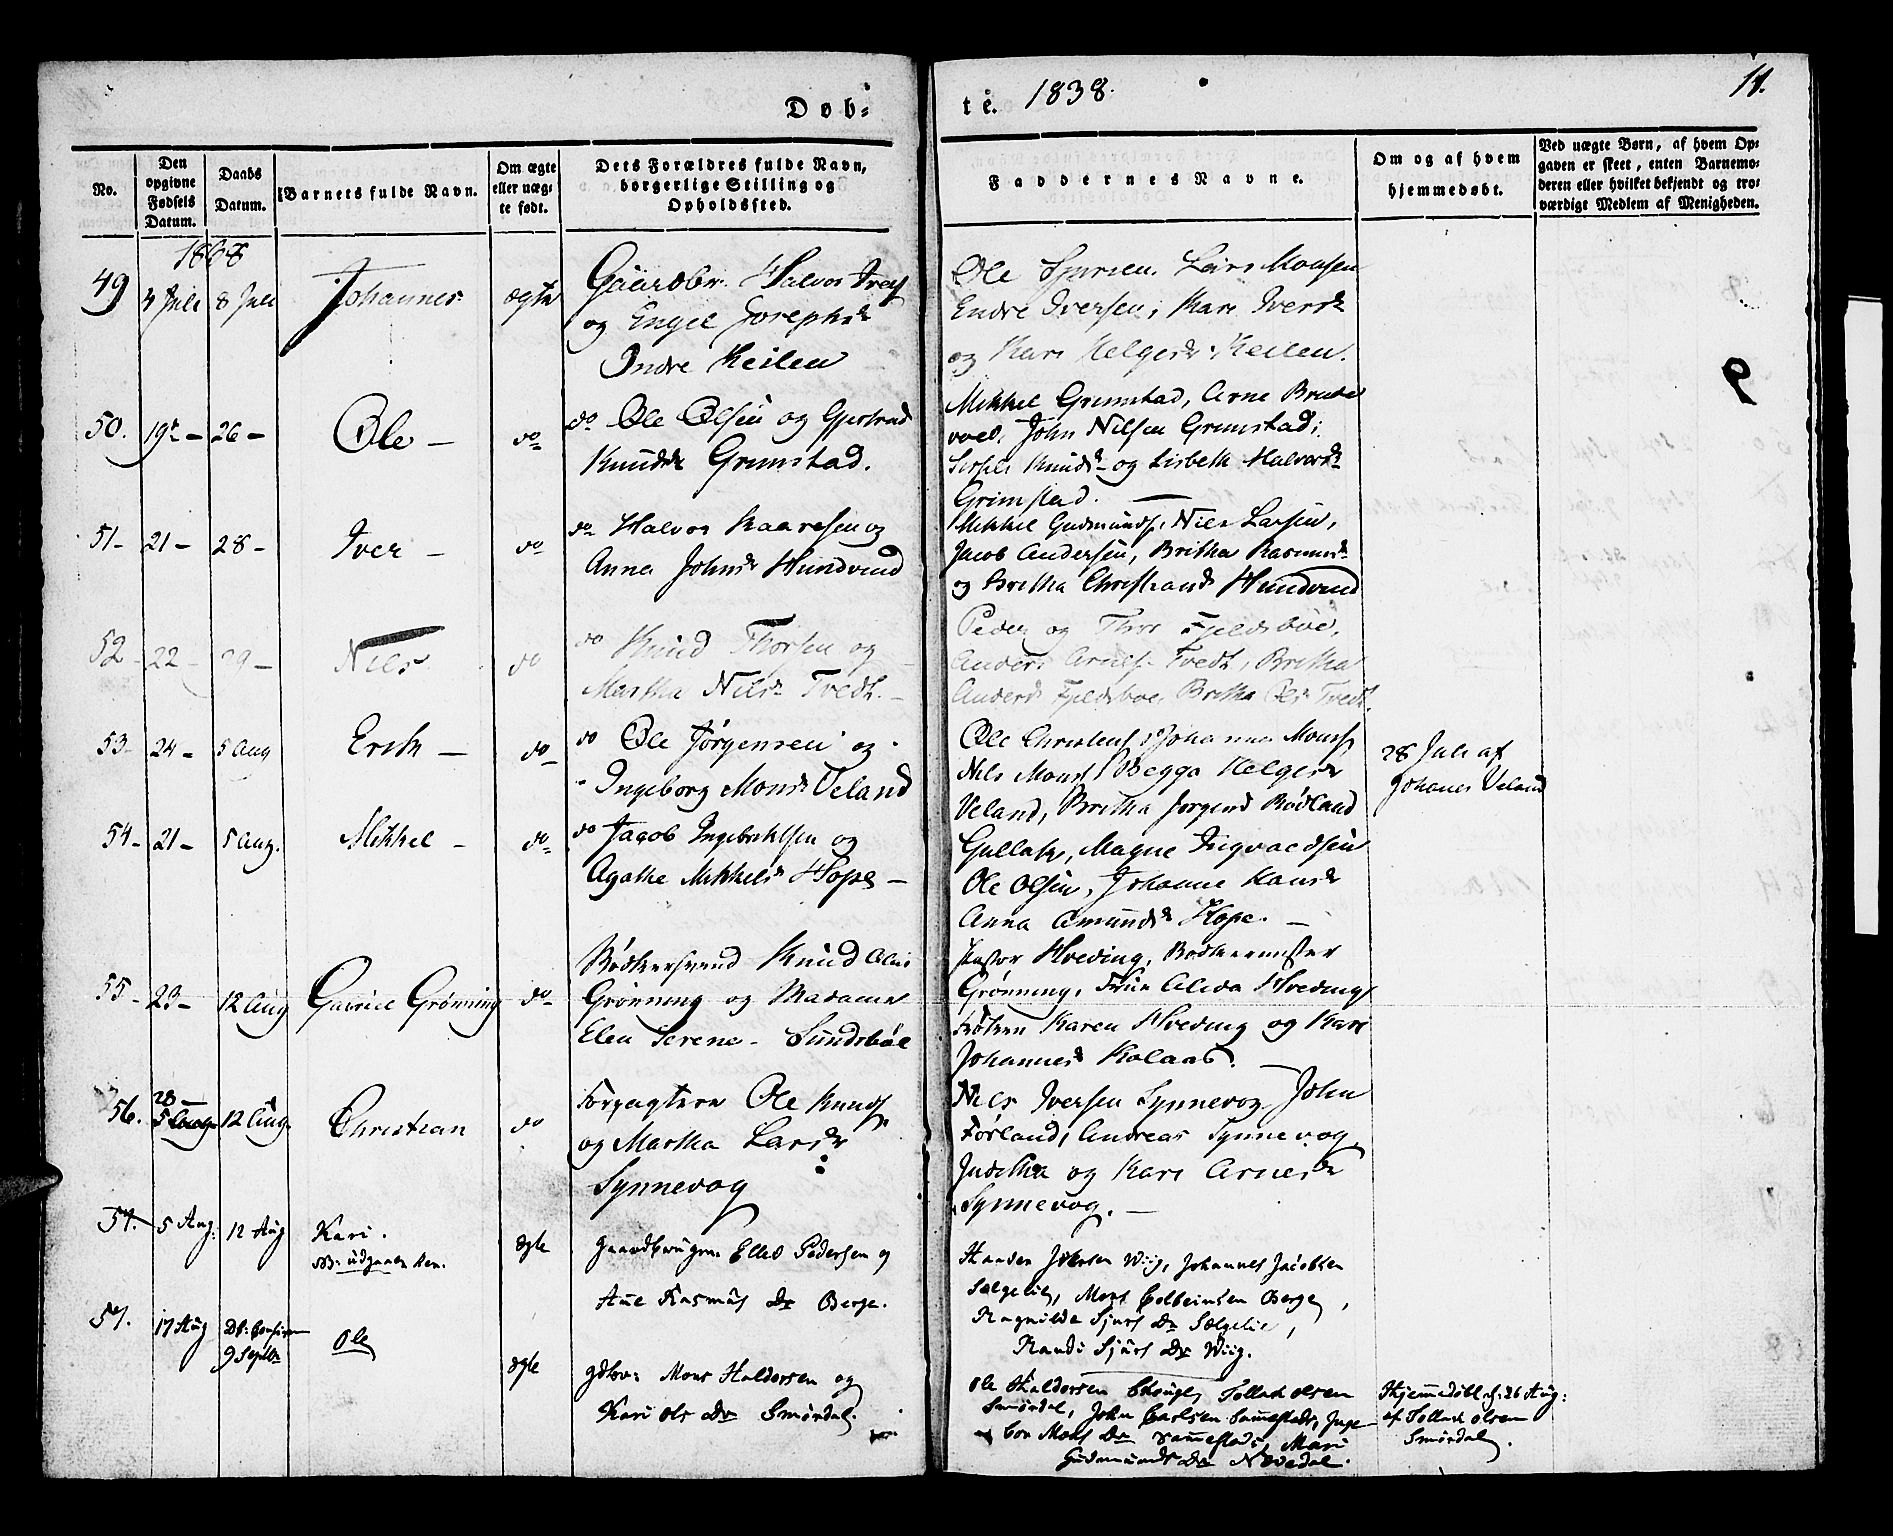 Døb-
te. 1838.
11.
No.
Den opgivne Fødsels Datum.
Daabs Datum.
Barnets fulde Navn.
Om ægte eller uægte født.
Dets Forældres fulde Navn, borgerlige Stilling og Opholdssted.
Faddernes Navne.
Om og af hvem hjemmedøbt.
Ved uægte Børn, af hvem Opgaven er skeet, enten Barnemoderen eller hvilket bekjendt og troværdigt Medlem af Menigheden.
49 4 Juli 8 Juli Johannes ægte
Gaardbr. Halvor Ivers
og Engel Josephsdr
Indre Keilen
Lars Monsen
Endre Iversen, Kari Iversdr
og Kari Helgesdr Keilen.
50. 19 - 26 - Ole - do
do Ole Olsen og Gjertrud
Knudsdr Grimstad.
Mikkel Grimstad, Arne
John Nilsen Grimstad,
Knudsdr og Lisbeth Halvorsdr
Grimstad. -
51 - 21 - 28 - Iver - do
do Halvor Kaaresen og
Anna Johnsdr Hundvend
Mikkel Gudmunds, Nils Larsen,
Jacob Andersen, Britha Rasmusdr
og Britha Christiansdr Hundvend
52 - 22 - 29 - Nils do
do Knud Thorsen og
Martha Nilsdr Tvedt. -
Peder og Thor Fjeldsbøe,
Anders Arnes. Tvedt, Britha
Andersd Fjeldsboe, Britha Olsdr Tvedt.
53 - 24 - 5 Aug Erik - do
do Ole Jørgensen og
Ingeborg Monsdr Veland
Ole Christens, Johannes Mons,
Nils Mons, Begga Helgesdr
Veland, Britha Jørgensd Rødland
28 Juli af
Johanes Veland
54 - 21 - 5 Aug. Mikkel - do
do Jacob Ingebrihtsen og
Agathe Mikkelsdr Hope -
Gullak, Magne Ingvaldsen
Ole Olsen, Johanne Hansdr
Anna Amundsdr Hope. -
55 - 23 - 12 Aug Gabriel Grønning do
Bødkersvend Knud
Grønning og Madame
Elen Serene Sundsbøe
Pastor Hveding, Bødkermester
Grønning, Frue Alida Hveding
Frøken Karen Hveding og Kari
Johannesdr Kolaas. -
56. 28 - 5 Aug 12 Aug. Christian do
Forpagteren Ole Knuds
og Martha Larsdr
Synnevog
Nils Iversen Synnevog John
Førland, Andreas Synnevog
Juditha og Kari Arnesdr
Synnevog. -
57. 5 Aug. 12 Aug Kari.
NB. udgaaer her.
ægte
Gaardbrugen Ellef Pedersen og
Ane Rasmus Dr Berge.
Wiig, Johannes Jacobsen
Sælgelie, Mons Colbeinsen Berge,
Ragnilde Sjurs Dr Sælgelie,
Randi Sjurs Dr Wiig.
57. 17 Aug 9 Septbr Ole
ægte
gdbr: Mons Haldorsen og
Kari Ols Dr Smørdal.
Ole Haldorsen Tollak Olsen
Smørdal, John Carlsen Inge
bor Mons Dr Mari
Gudmunds Dr Nævedal.
Hjemmedøbt d: 26 Aug:
af Tollak Olsen
Smørdal.